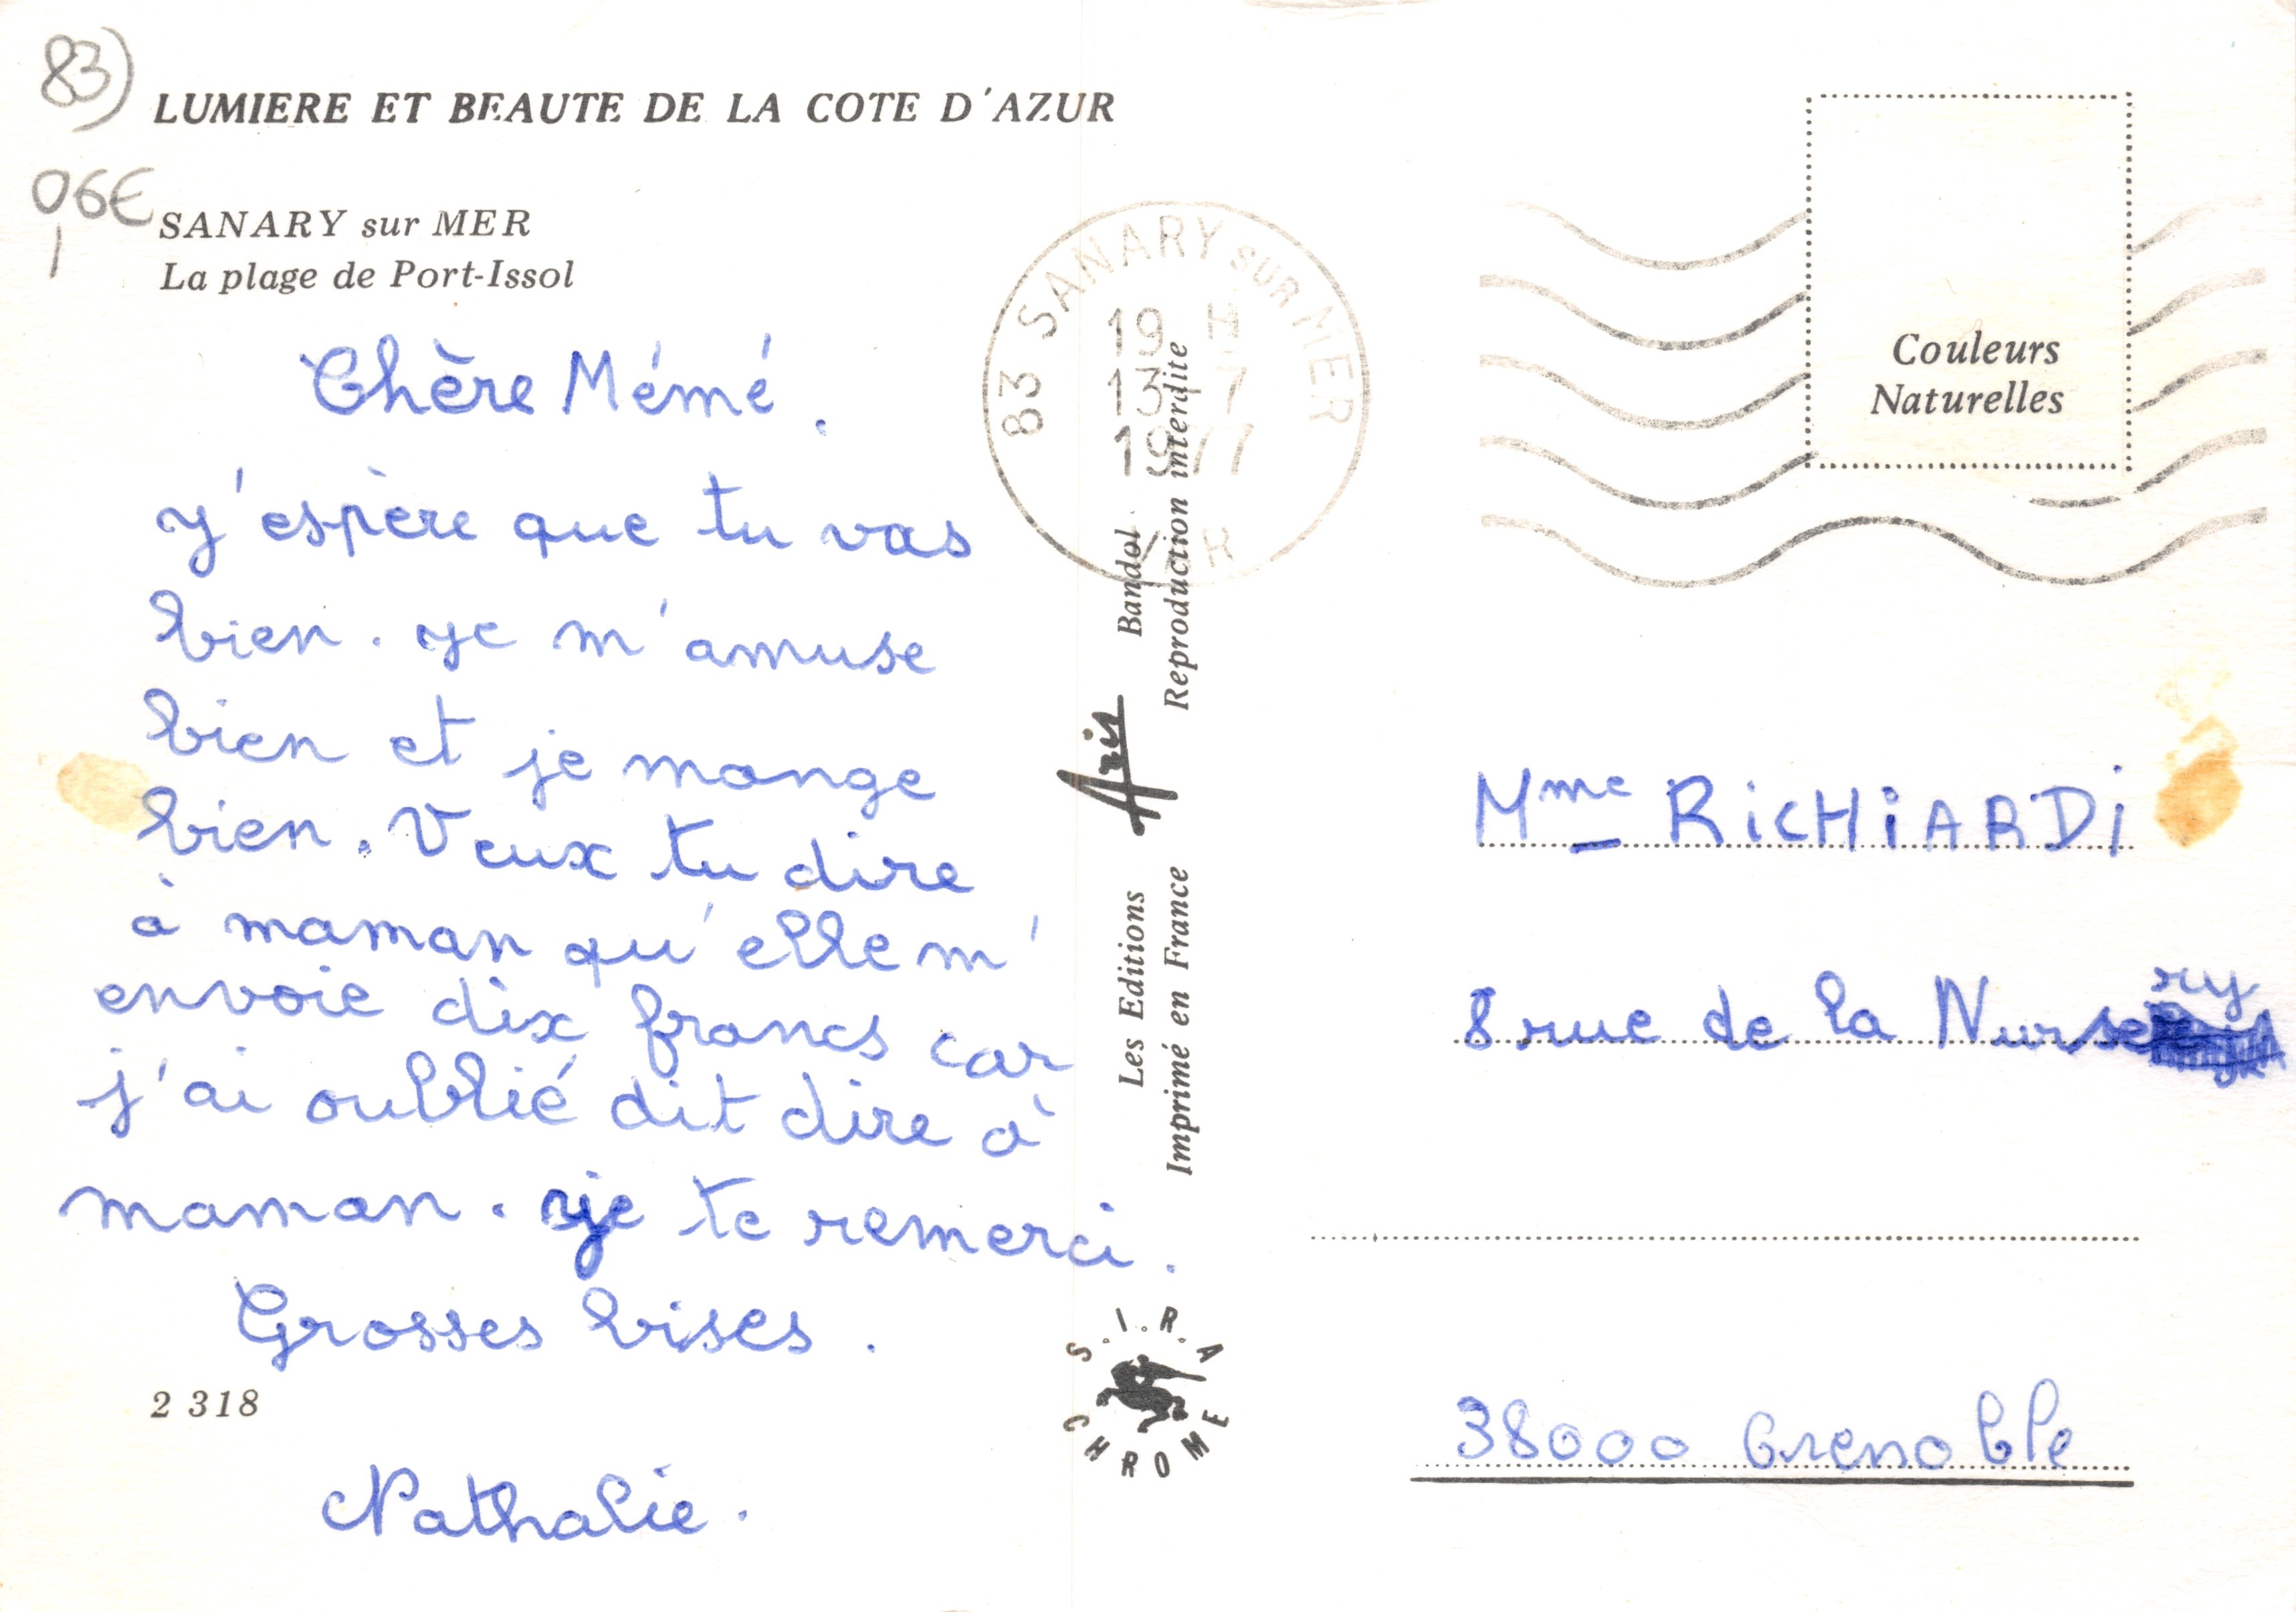 83)
LUMIERE ET BEAUTE DE LA COTE D'AZUR
06€
SANARY sur MER
La plage de Port-Issol
Chère Mémé.
J'espère que tu vas
bien. Je m'amuse
bien et je mange
bien. Veux tu dire
à maman qu'elle m'
envoie dix francs car
j'ai oublié dit dire à
maman. Je te remerci.
Grosses bises.
2 318
Nathalie.
83 SANARY SUR MER
19 H
13 7
1977
VAR
Les Editions Aris Bandol
Imprimé en France Reproduction interdite
S.I.R.A
CHROME
Couleurs
Naturelles
Mme RiCHiARDi
8 rue de la Nursery
38000 Grenoble